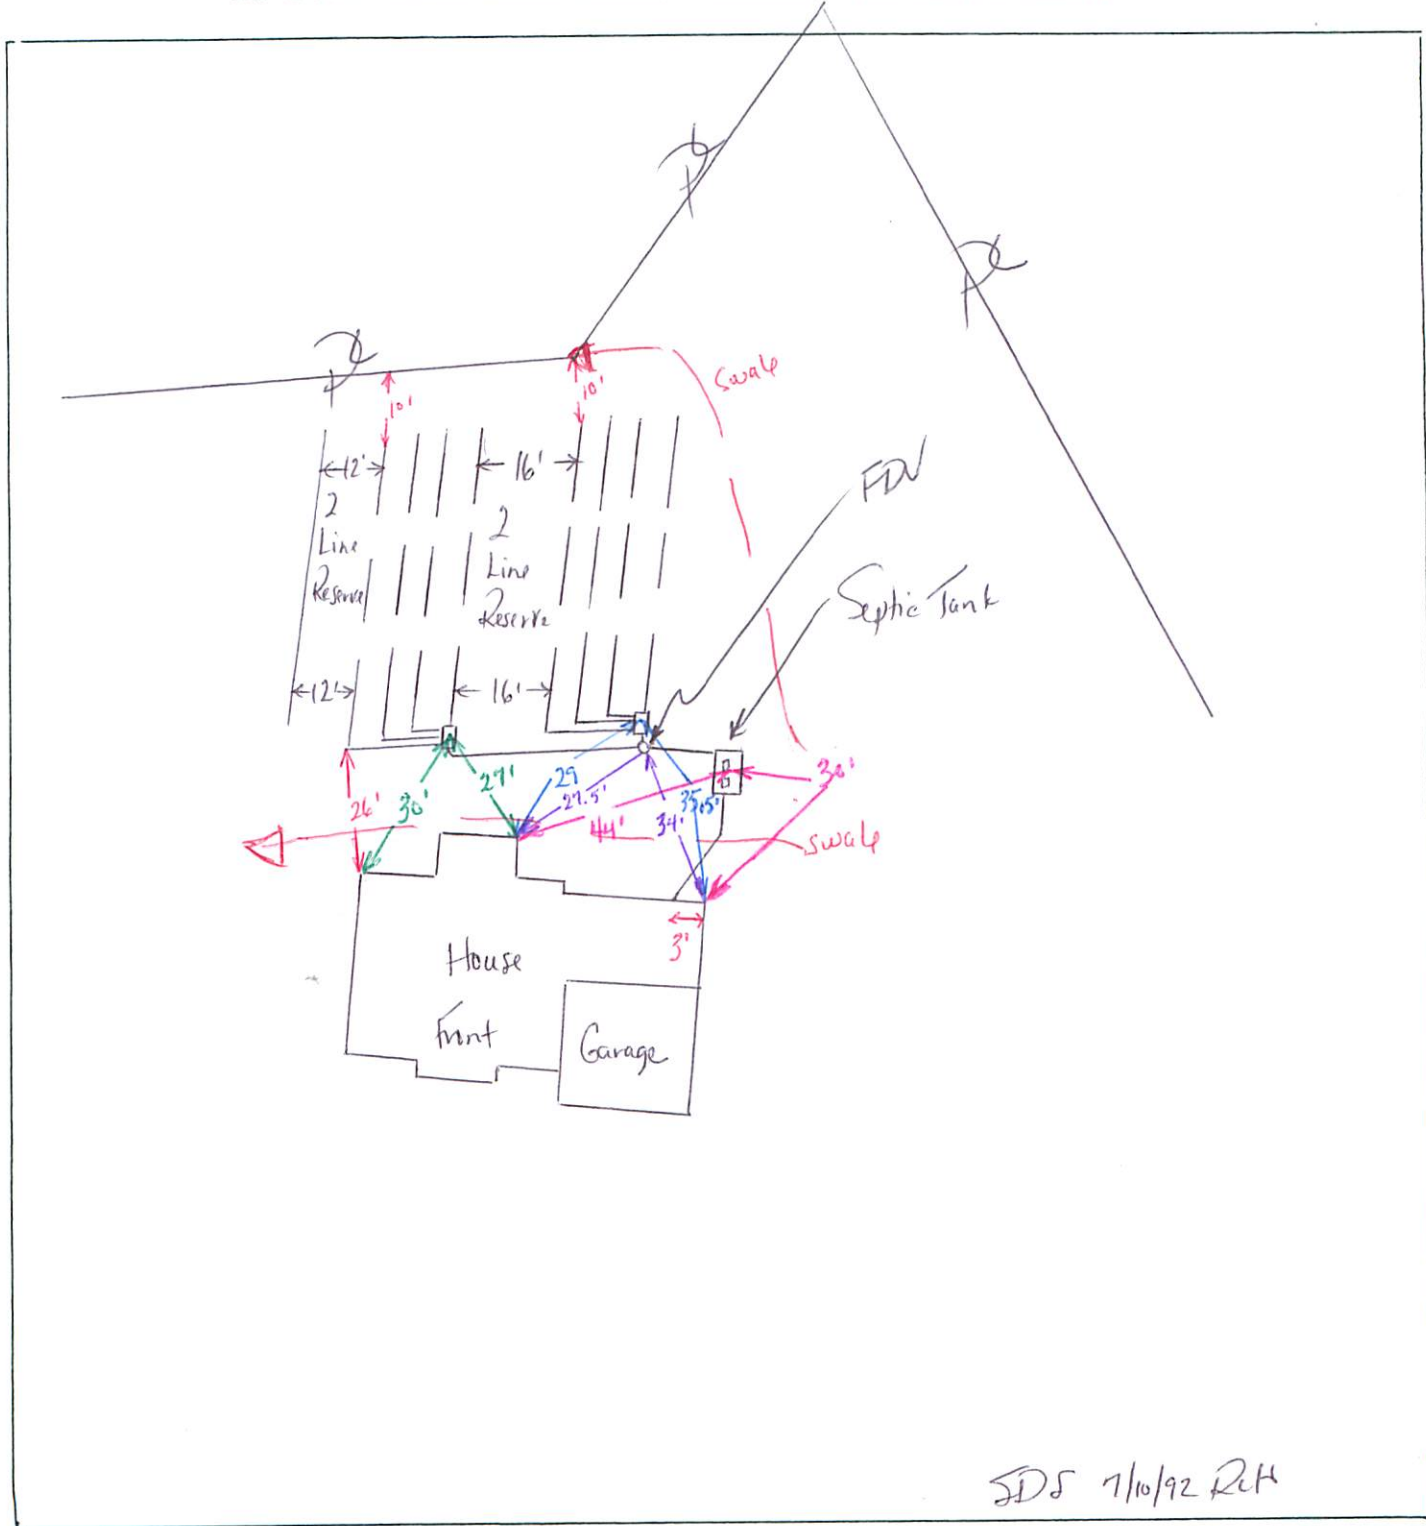 PL
PL
PL
Swale
10'
10'
12'
16'
2
Line
Reserve
2
Line
Reserve
FDV
Septic Tank
12'
16'
26'
30'
27'
29
27.5'
44'
34'
35.5'
30'
Swale
3'
House
Front
Garage
SDS 7/10/92 RCH